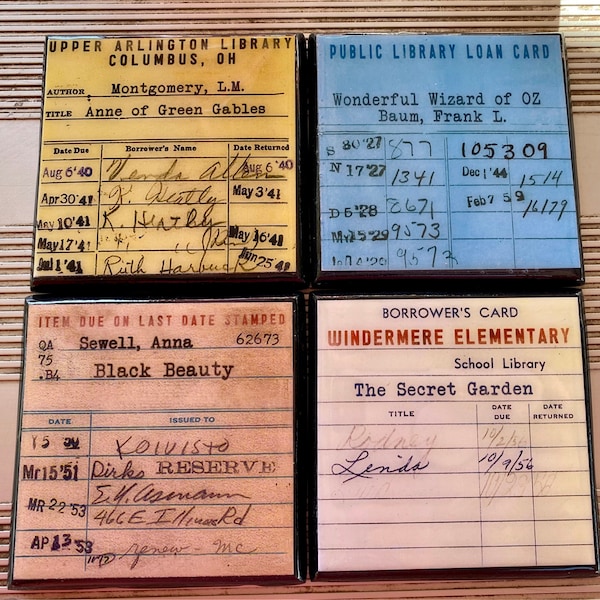 UPPER ARLINGTON LIBRARY
COLUMBUS, OH
AUTHOR Montgomery, L.M.
TITLE Anne of Green Gables
Date Due Borrower's Name Date Returned
Aug 6'40 Aug 6 '40
Apr 30'41 May 3'41
May 10'41 K. Heatley
May 17'41 May 16'41
Jul 1'41 Ruth Jun 25'41
PUBLIC LIBRARY LOAN CARD
Wonderful Wizard of OZ
Baum, Frank L.
S 30'27 877 105309
N 17'27 1341 Dec 1'44 1514
D 5'28 8671 Feb 7 59 16179
My 15'29 9573
9573
ITEM DUE ON LAST DATE STAMPED
QA Sewell, Anna 62673
75
.B4 Black Beauty
DATE ISSUED TO
Koivisto
Mr 15'51 Dirks RESERVE
MR 22'53
466 E Rd
AP 13 '53 renew - mc
BORROWER'S CARD
WINDERMERE ELEMENTARY
School Library
The Secret Garden
TITLE DATE DUE DATE RETURNED
Rodney 10/2/56
Lenida 10/9/56